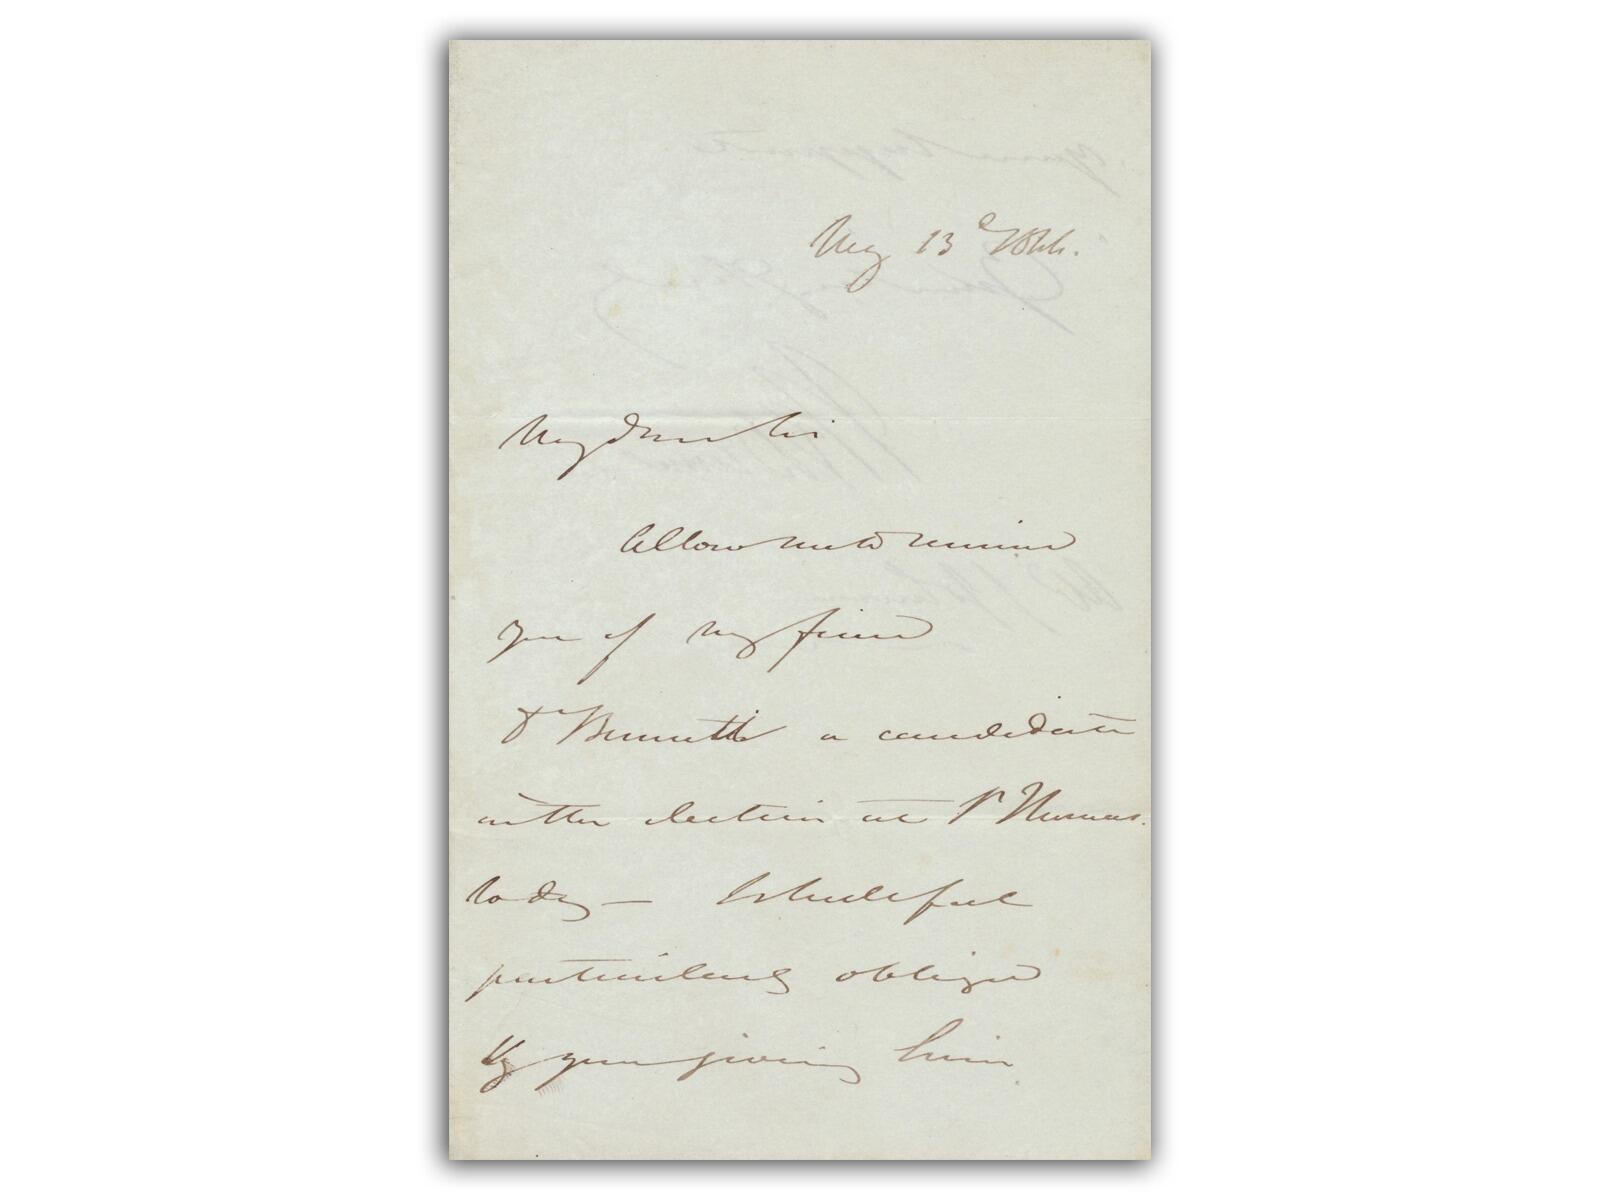 May 13th 1844.
My dear Sir
Allow me to remind
you of my friend
Dr Bennett a candidate
in the election at St Thomas.
to day — I shall feel
particularly obliged
by your giving him